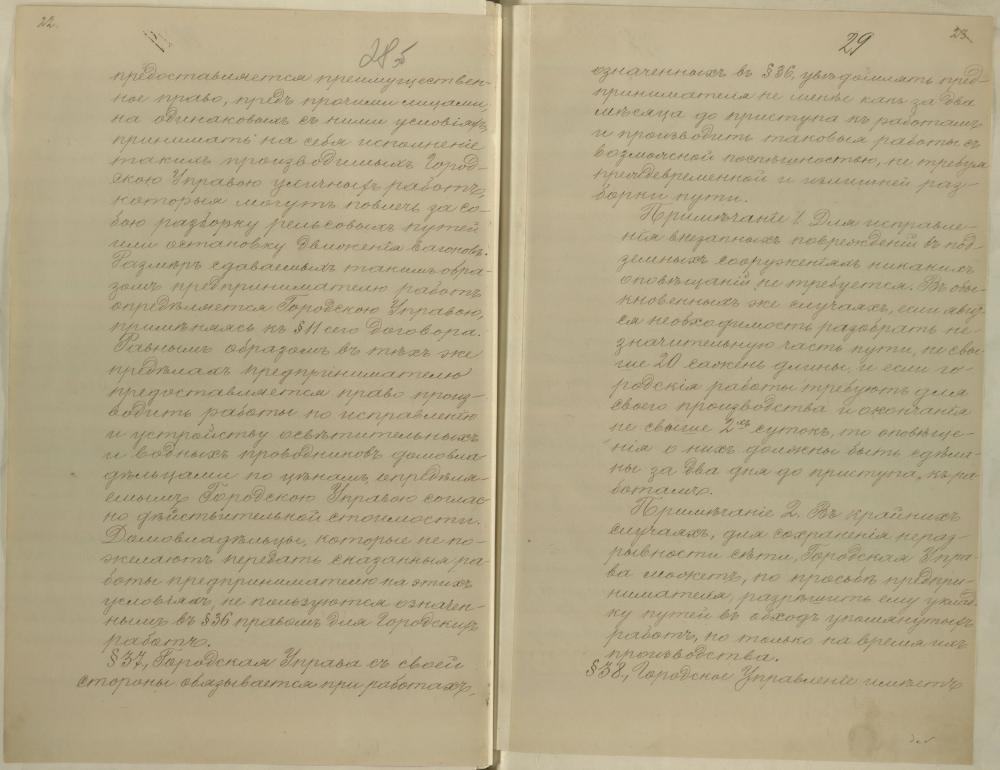 22.
28 б
предоставляется преимуществен-
ное право, предъ прочими лицами,
на одинаковыхъ съ ними условіяхъ,
принимать на себя исполненіе
такихъ производимыхъ Город-
скою Управою уличныхъ работъ,
которыя могутъ повлечь за со-
бою разборку рельсовыхъ путей
или остановку движенія вагоновъ.
Размѣръ сдаваемыхъ такимъ обра-
зомъ предпринимателю работъ
опредѣляется Городскою Управою,
примѣняясь къ § 11 сего Договора.
Равнымъ образомъ въ тѣхъ же
предѣлахъ предпринимателю
предоставляется право произ-
водить работы по исправленію
и устройству освѣтительныхъ
и водныхъ проводниковъ домовла-
дѣльцами по цѣнамъ, опредѣля-
емымъ Городскою Управою соглас-
но дѣйствительной стоимости.
Домовладѣльцы, которые не по-
желаютъ передать сказанныя ра-
боты предпринимателю на этихъ
условіяхъ, не пользуются означен-
нымъ въ § 36 правомъ для Городскихъ
работъ.
§ 37, Городская Управа съ своей
стороны обязывается при работахъ,
29
23
означенныхъ въ § 36, увѣдомлять пред-
принимателя не менѣе какъ за два
мѣсяца до приступа къ работамъ
и производить таковыя работы съ
возможной поспѣшностью, не требуя
преждевременной и излишней раз-
борки пути.
Примѣчаніе 1. Для исправле-
нія внезапныхъ поврежденій въ под-
земныхъ сооруженіяхъ никакихъ
оповѣщаній не требуется. Въ обы-
кновенныхъ же случаяхъ, если явит-
ся необходимость разобрать не-
значительную часть пути, не свы-
ше 20 сажень длины, и если го-
родскія работы требуютъ для
своего производства и окончанія
не свыше 2хъ сутокъ, то оповѣще-
нія о нихъ должны быть сдѣла-
ны за два дня до приступа къ ра-
ботамъ.
Примѣчаніе 2. Въ крайнихъ
случаяхъ, для сохраненія нераз-
рывности сѣти, Городская Упра-
ва можетъ, по просьбѣ предпри-
нимателя, разрѣшить ему уклад-
ку путей въ обходъ упомянутыхъ
работъ, но только на время ихъ
производства.
§ 38, Городское Управленіе имѣетъ